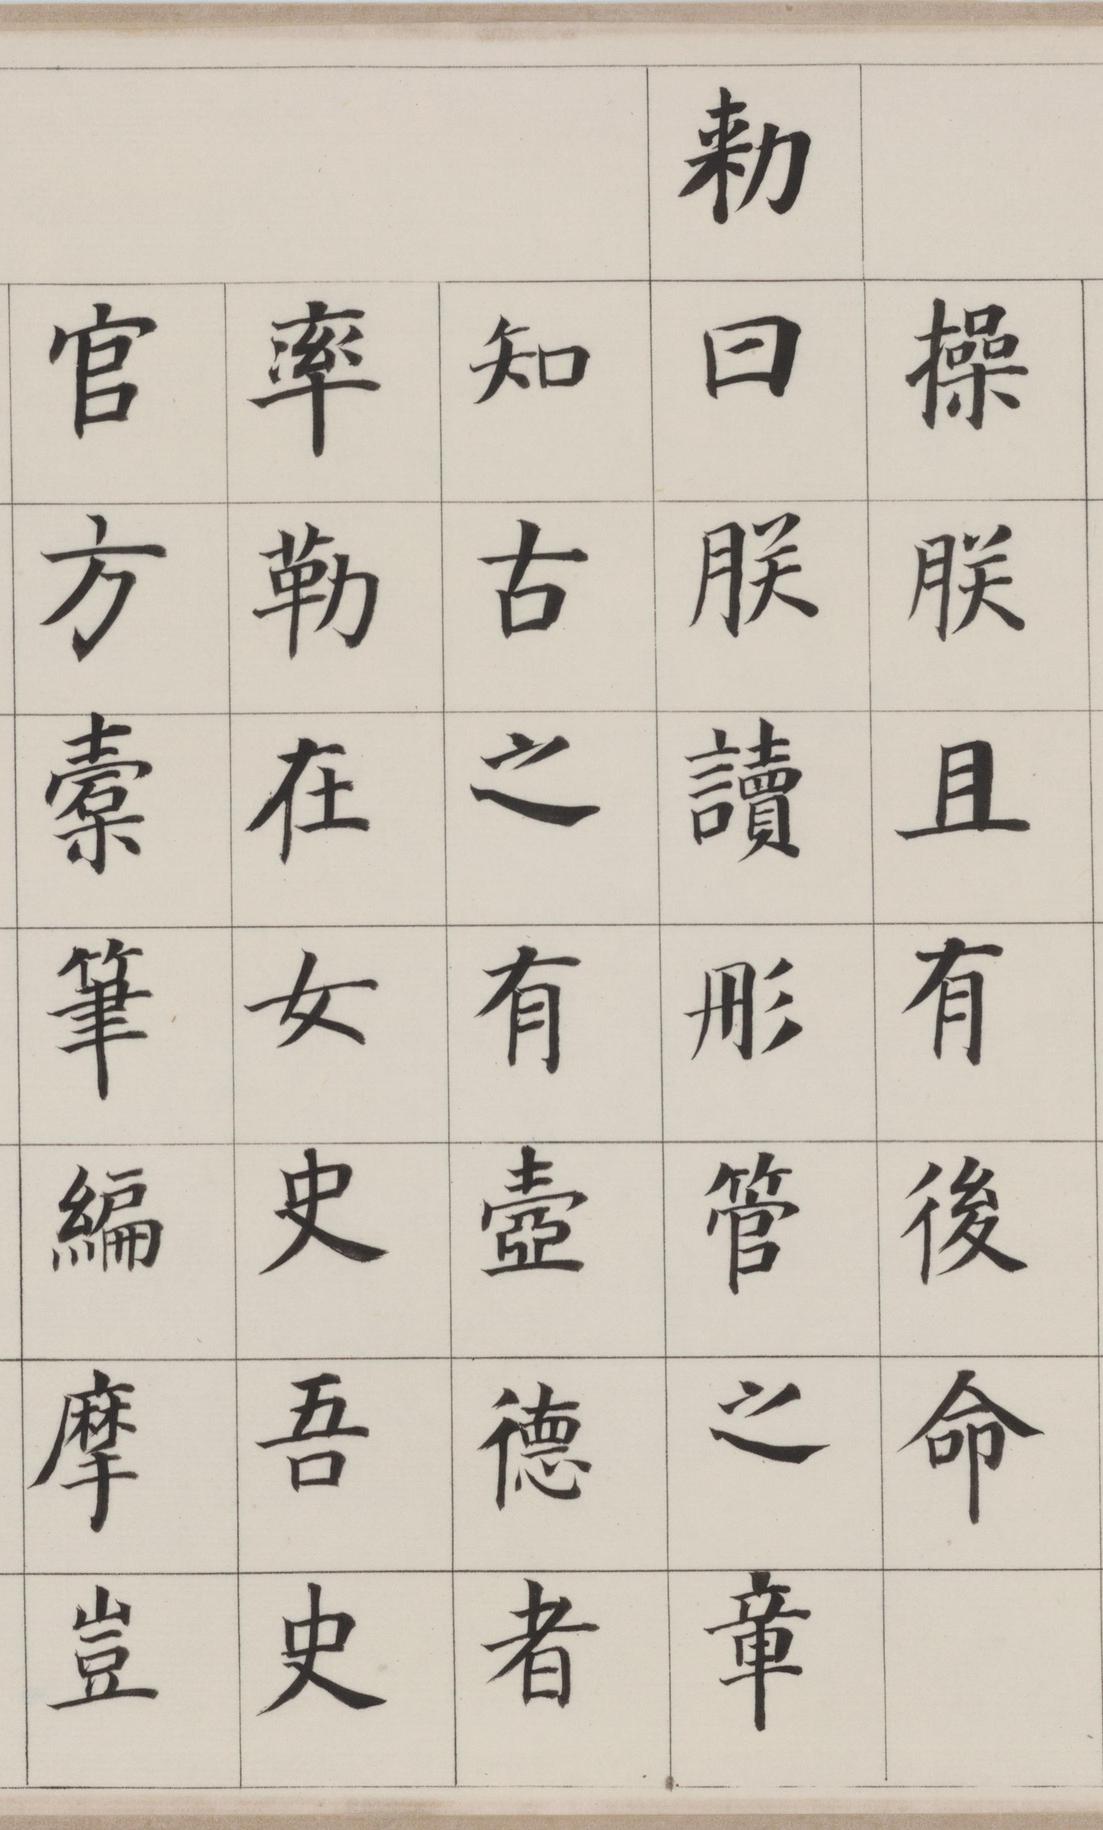 操朕且有後命
勑曰朕讀彤管之章
知古之有壼德者
率勒在女史吾史
官方橐筆編摩豈